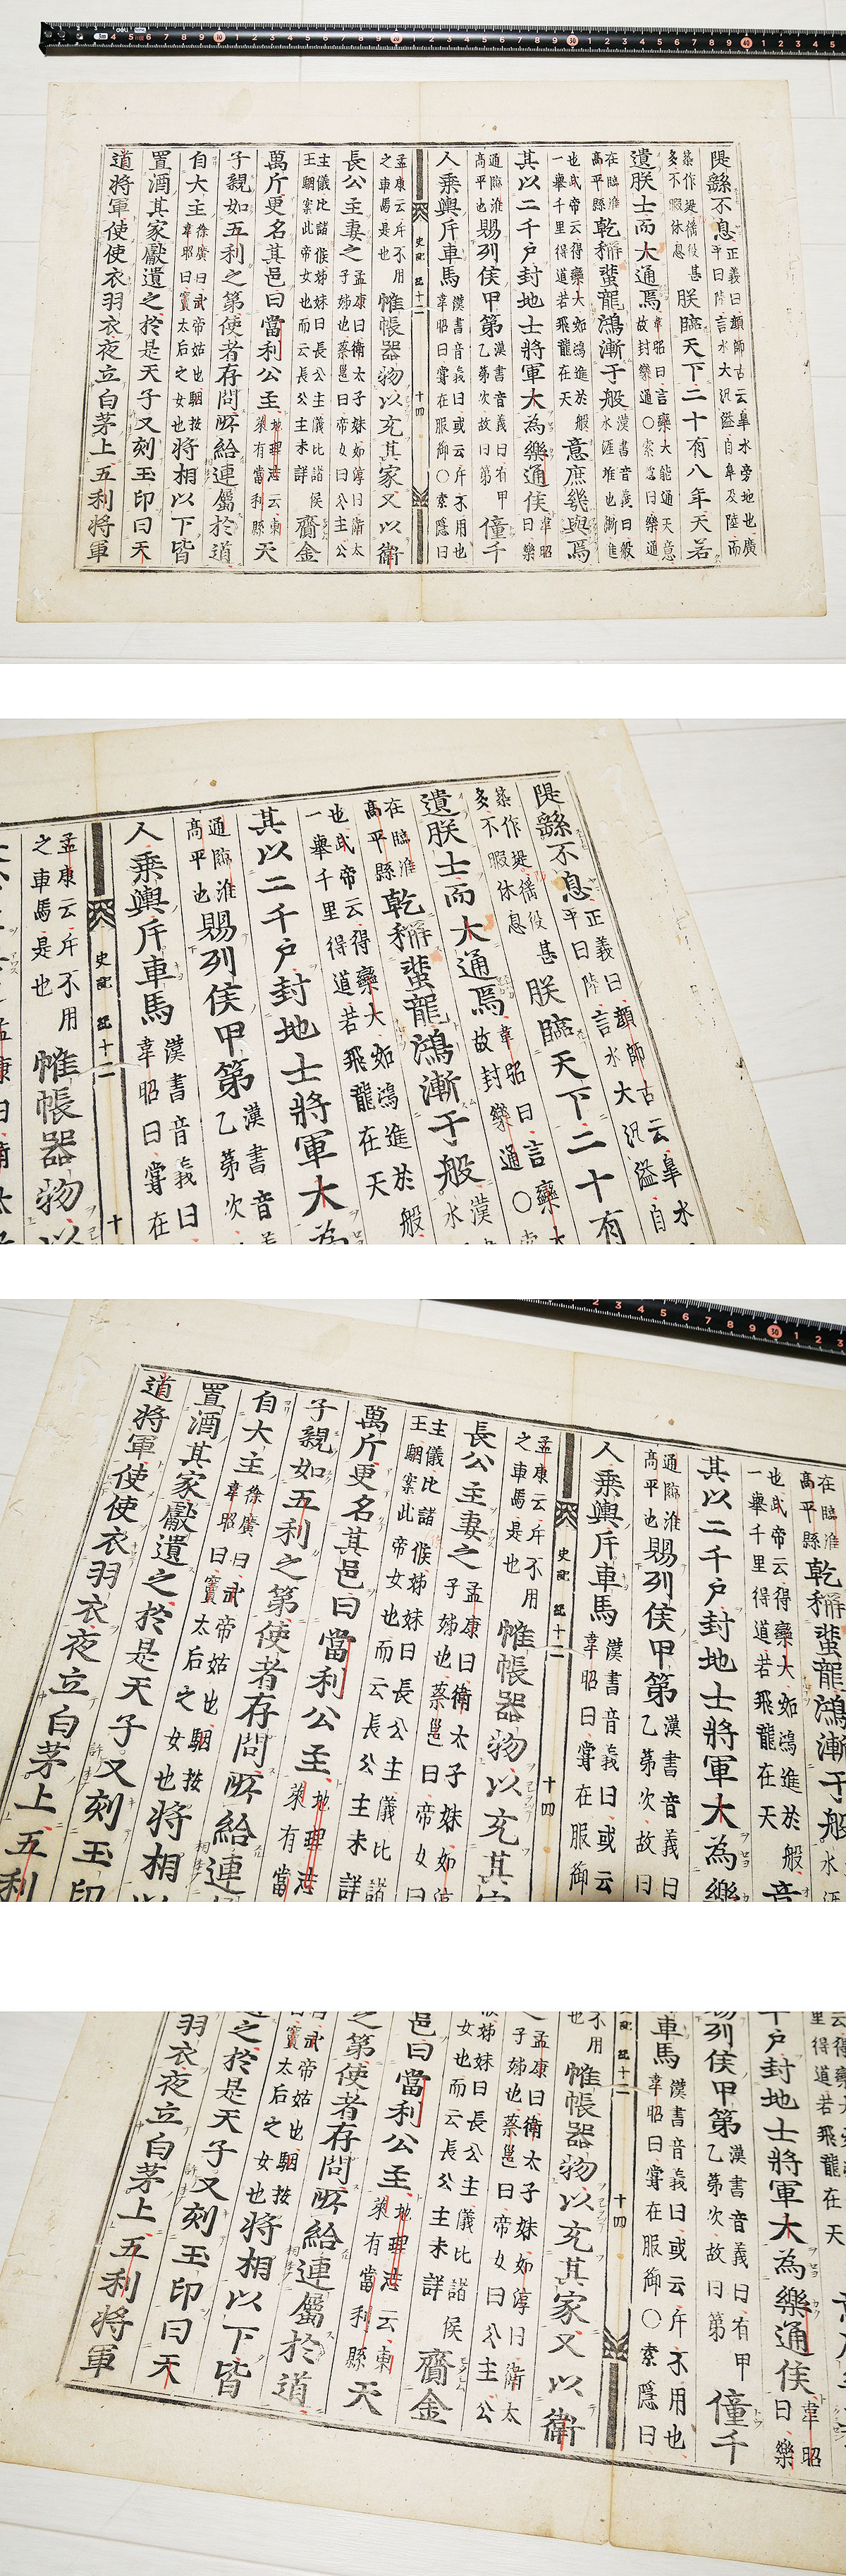 隄繇不息正義曰顔師古云皐水旁地也廣平曰陸言水大汎溢自皐及陸而
築作堤徭役甚多不暇休息朕臨天下二十有八年天若
遺朕士而大通焉韋昭曰言欒大能通天意故封樂通○索隱曰樂通
在臨淮高平縣乾稱蜚龍鴻漸于般漢書音義曰般水涯堆也漸進
也武帝云得欒大如鴻進於般一舉千里得道若飛龍在天意庶幾與焉
其以二千戶封地士將軍大為樂通侯韋昭曰樂
通臨淮高平也賜列侯甲第漢書音義曰有甲乙第次故曰第僮千
人乘輿斥車馬漢書音義曰或云斥不用也韋昭曰嘗在服御○索隱曰
史記 紀十二 十四
孟康云斥不用之車馬是也帷帳器物以充其家又以衛
長公主妻之孟康曰衛太子妹如淳曰衛太子姊也蔡邕曰帝女曰公主公
主儀比諸侯姊妹曰長公主儀比諸侯王駰案此帝女也而云長公主未詳齎金
萬斤更名其邑曰當利公主地理志云東萊有當利縣天
子親如五利之第使者存問所給連屬於道
自大主徐廣曰武帝姑也駰按韋昭曰竇太后之女也將相以下皆
置酒其家獻遺之於是天子又刻玉印曰天
道將軍使使衣羽衣夜立白茅上五利將軍